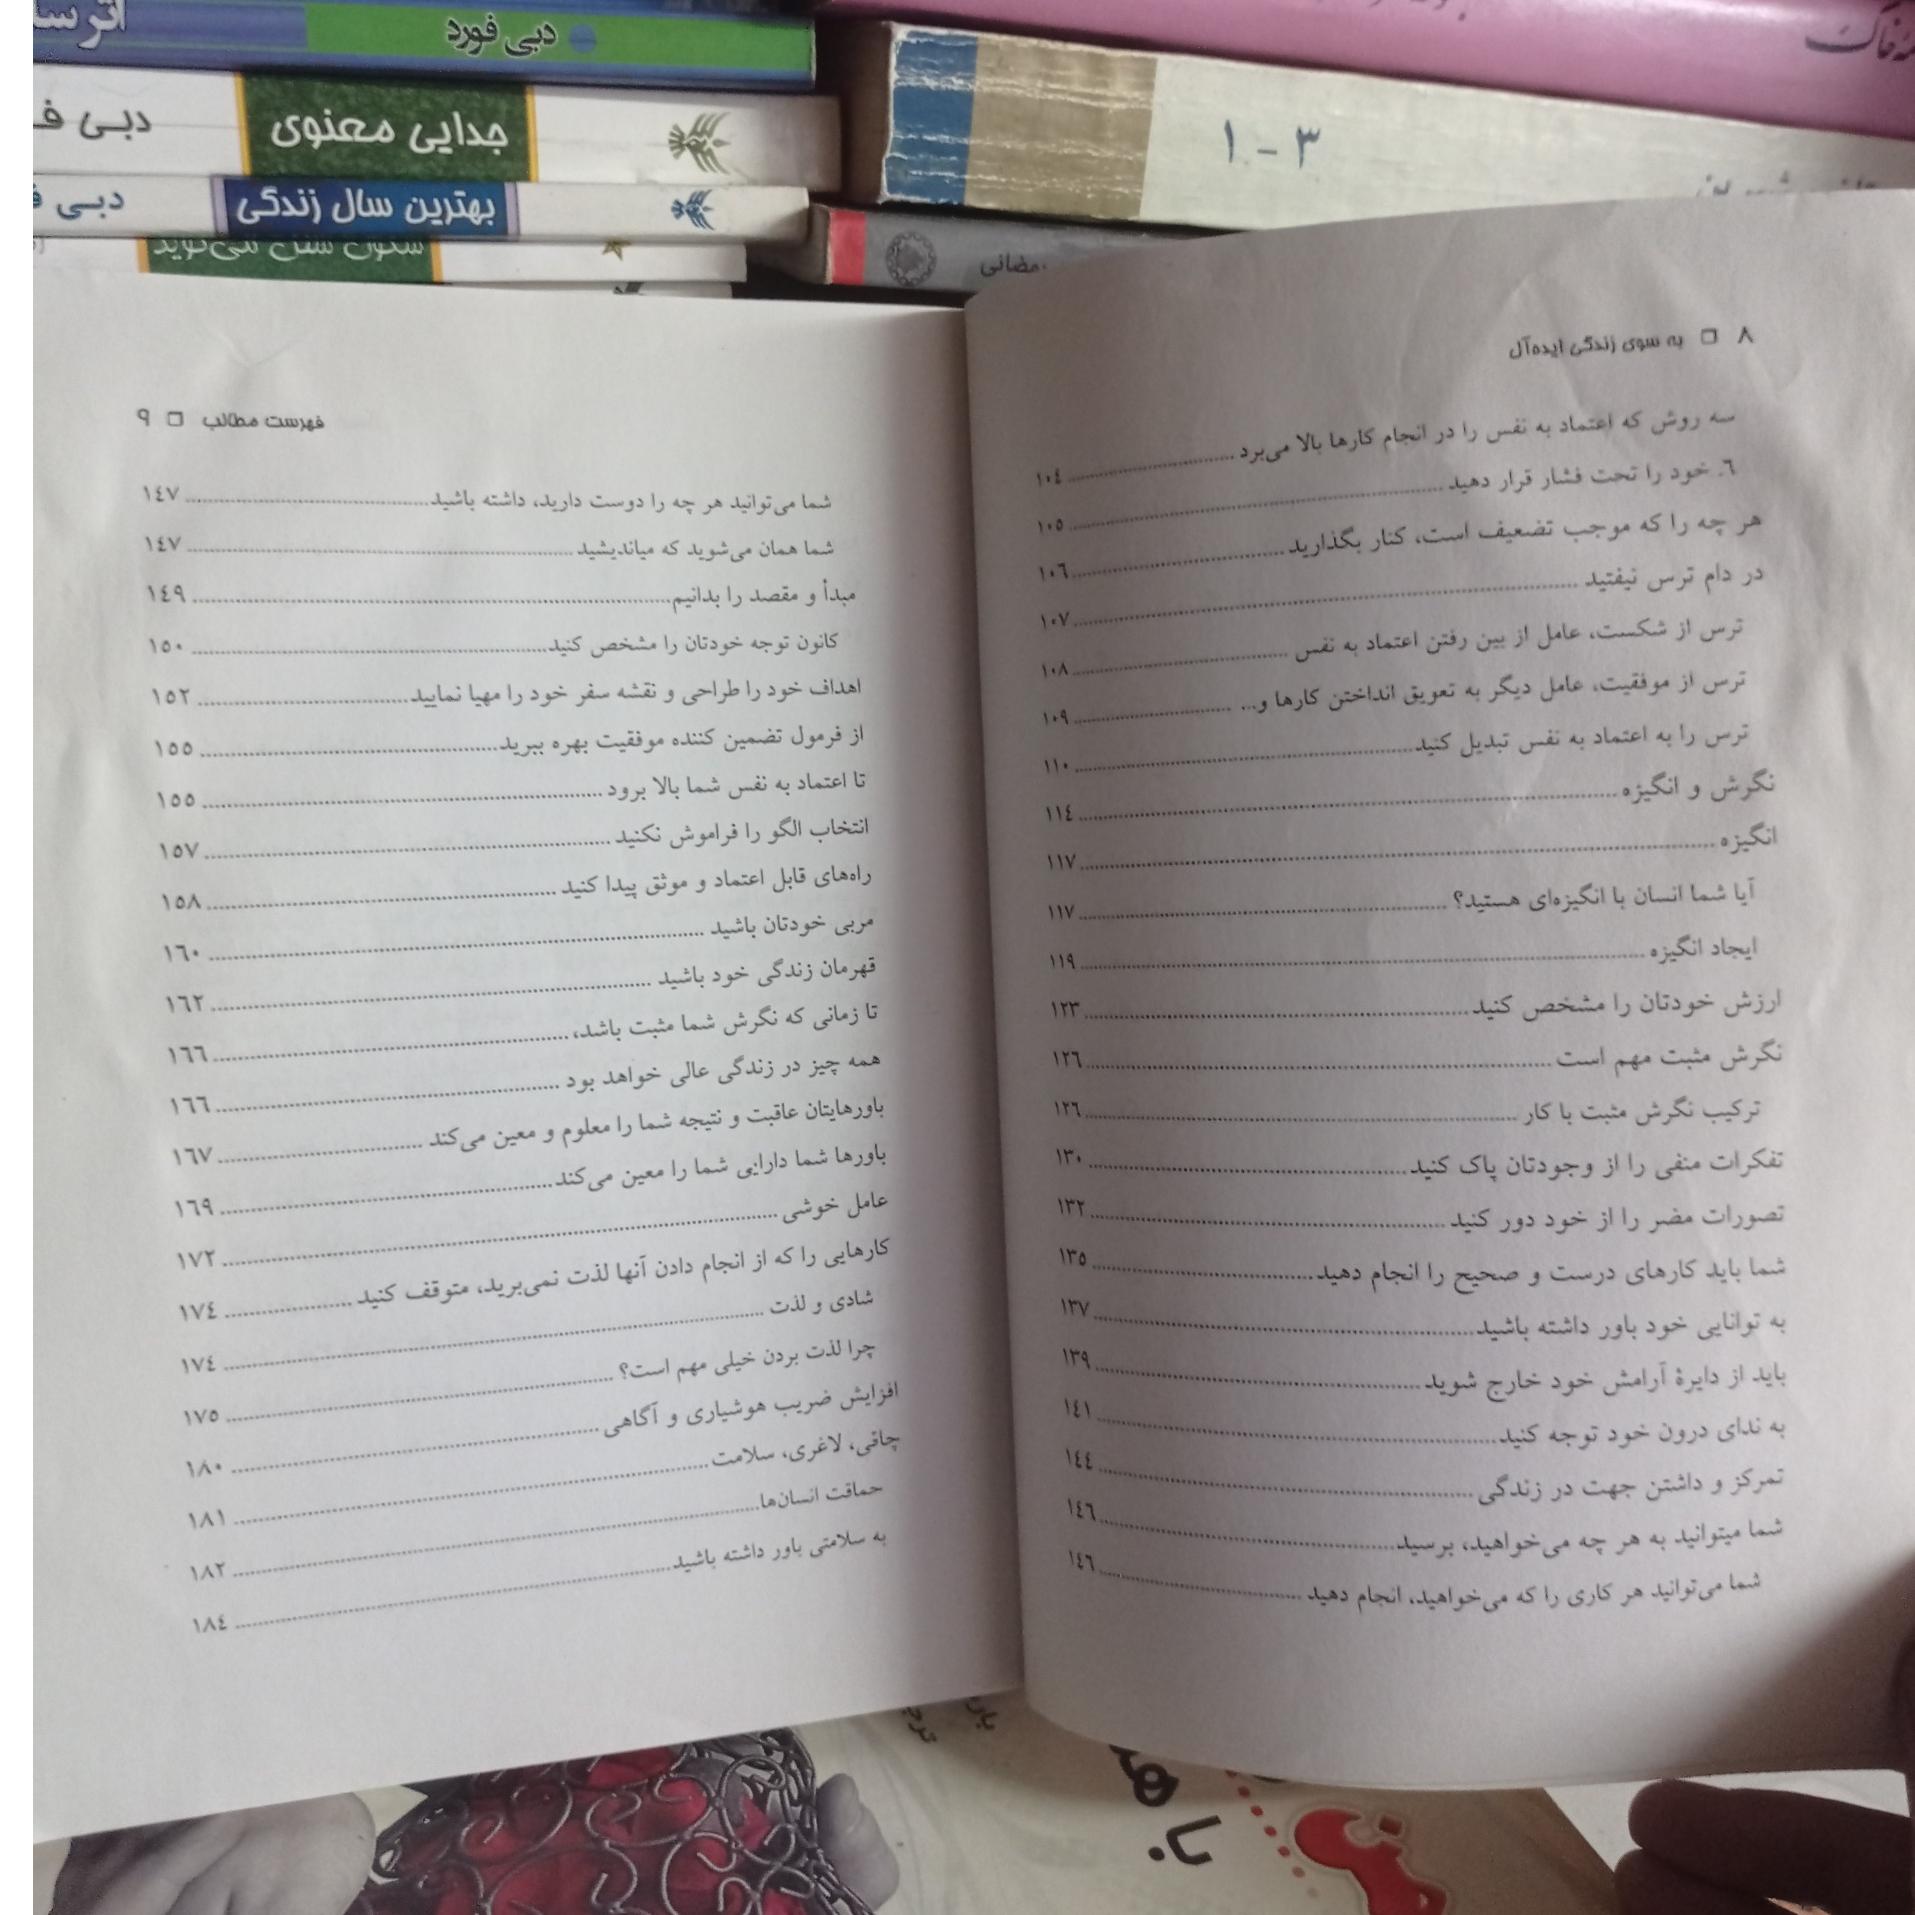 دبی فورد
جدایی معنوی
دبی
بهترین سال زندگی
دبی
۱ - ۳
۸ □ به سوی زندگی ایده‌آل
سه روش که اعتماد به نفس را در انجام کارها بالا می‌برد ........ ۱۰٤
٦. خود را تحت فشار قرار دهید ........ ۱۰۵
هر چه را که موجب تضعیف است، کنار بگذارید ........ ۱۰٦
در دام ترس نیفتید ........ ۱۰۷
ترس از شکست، عامل از بین رفتن اعتماد به نفس ........ ۱۰۸
ترس از موفقیت، عامل دیگر به تعویق انداختن کارها و... ........ ۱۰۹
ترس را به اعتماد به نفس تبدیل کنید ........ ۱۱۰
نگرش و انگیزه ........ ۱۱٤
انگیزه ........ ۱۱۷
آیا شما انسان با انگیزه‌ای هستید؟ ........ ۱۱۷
ایجاد انگیزه ........ ۱۱۹
ارزش خودتان را مشخص کنید ........ ۱۲۳
نگرش مثبت مهم است ........ ۱۲٦
ترکیب نگرش مثبت با کار ........ ۱۲٦
تفکرات منفی را از وجودتان پاک کنید ........ ۱۳۰
تصورات مضر را از خود دور کنید ........ ۱۳۲
شما باید کارهای درست و صحیح را انجام دهید ........ ۱۳۵
به توانایی خود باور داشته باشید ........ ۱۳۷
باید از دایرهٔ آرامش خود خارج شوید ........ ۱۳۹
به ندای درون خود توجه کنید ........ ۱٤۱
تمرکز و داشتن جهت در زندگی ........ ۱٤٤
شما میتوانید به هر چه می‌خواهید، برسید ........ ۱٤٦
شما می‌توانید هر کاری را که می‌خواهید، انجام دهید ........ ۱٤٦
فهرست مطالب □ ۹
شما می‌توانید هر چه را دوست دارید، داشته باشید ........ ۱٤۷
شما همان می‌شوید که میاندیشید ........ ۱٤۷
مبدأ و مقصد را بدانیم ........ ۱٤۹
کانون توجه خودتان را مشخص کنید ........ ۱۵۰
اهداف خود را طراحی و نقشه سفر خود را مهیا نمایید ........ ۱۵۲
از فرمول تضمین کننده موفقیت بهره ببرید ........ ۱۵۵
تا اعتماد به نفس شما بالا برود ........ ۱۵۵
انتخاب الگو را فراموش نکنید ........ ۱۵۷
راه‌های قابل اعتماد و موثق پیدا کنید ........ ۱۵۸
مربی خودتان باشید ........ ۱٦۰
قهرمان زندگی خود باشید ........ ۱٦۲
تا زمانی که نگرش شما مثبت باشد، ........ ۱٦٦
همه چیز در زندگی عالی خواهد بود ........ ۱٦٦
باورهایتان عاقبت و نتیجه شما را معلوم و معین می‌کند ........ ۱٦۷
باورها شما دارایی شما را معین می‌کند ........ ۱٦۹
عامل خوشی ........ ۱۷۲
کارهایی را که از انجام دادن آنها لذت نمی‌برید، متوقف کنید ........ ۱۷٤
شادی و لذت ........ ۱۷٤
چرا لذت بردن خیلی مهم است؟ ........ ۱۷۵
افزایش ضریب هوشیاری و آگاهی ........ ۱۸۰
چاقی، لاغری، سلامت ........ ۱۸۱
حماقت انسان‌ها ........ ۱۸۲
به سلامتی باور داشته باشید ........ ۱۸٤